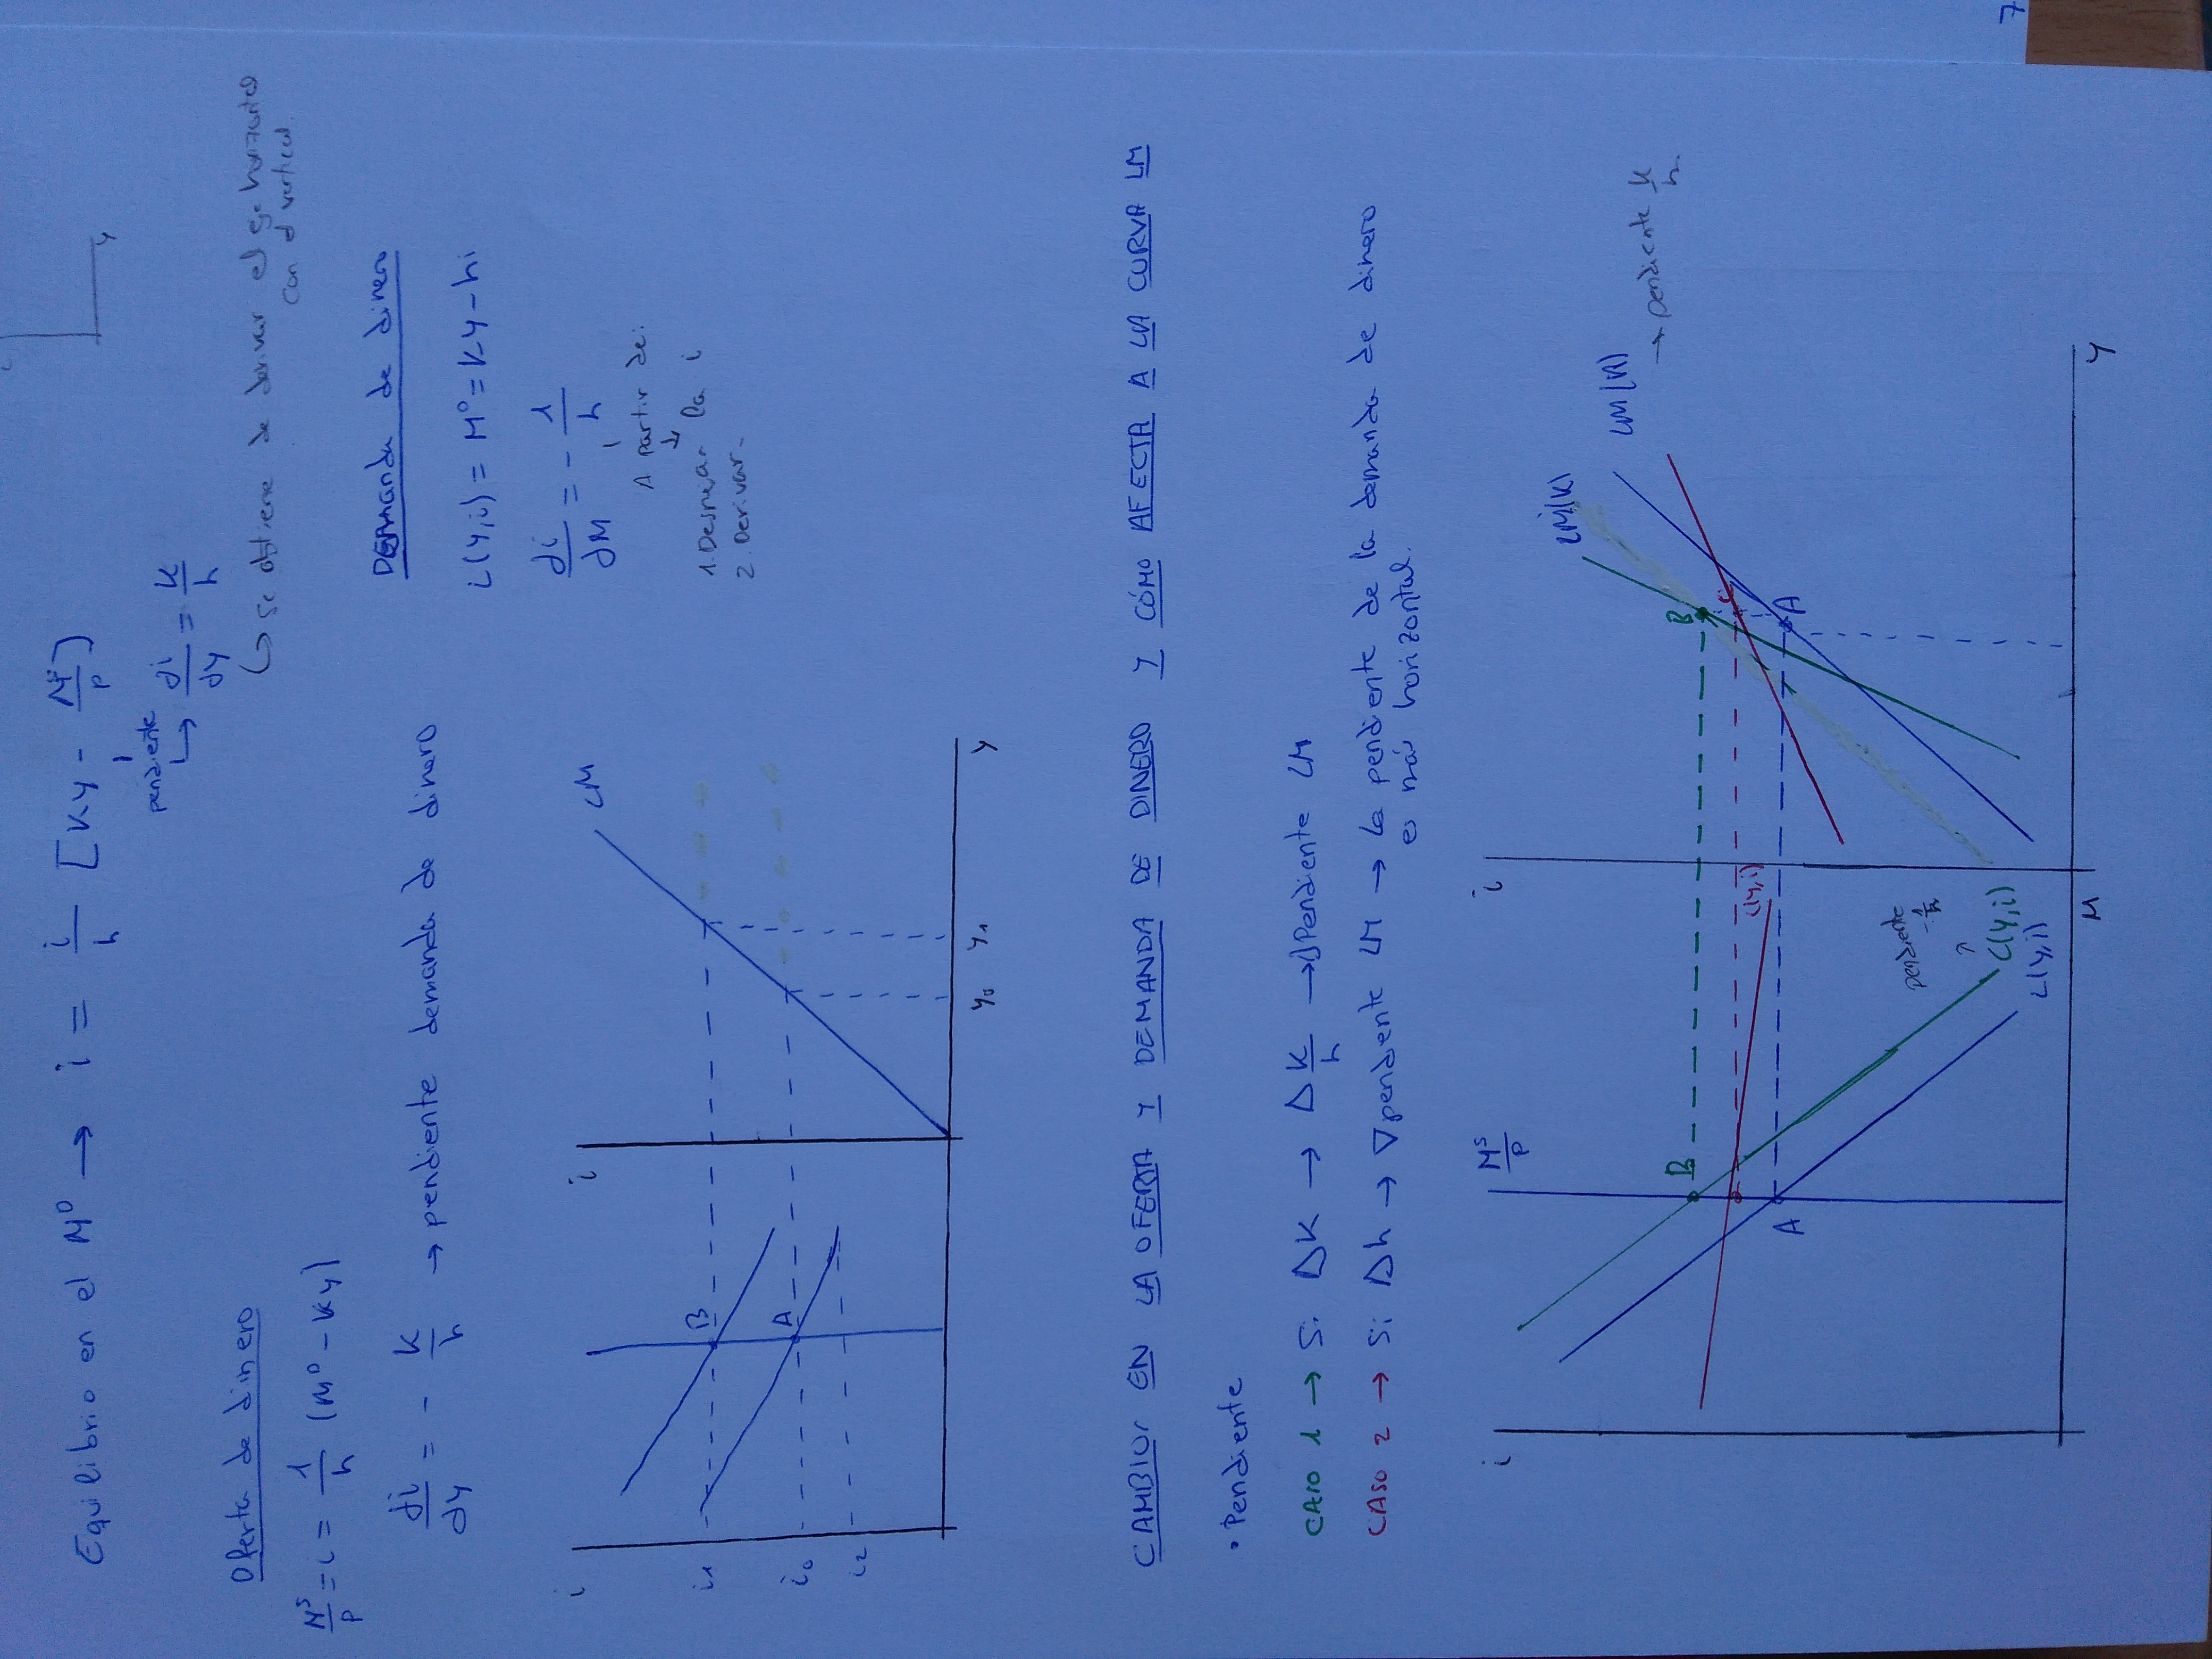 Equilibrio en el Mᴰ → i = i/h [Ky - Mˢ/P]
pendiente
↳ di/dy = K/h
↳ Se obtiene de derivar el eje horizontal
con el vertical.
y
Oferta de dinero
Mˢ/P = i = 1/h (Mᴰ - Ky)
di/dy = - K/h → pendiente demanda de dinero
DEMANDA de dinero
L(y,i) = Mᴰ = Ky - hi
di/dM = - 1/h
A partir de:
1. Despejar la i
2. Derivar.
i
i
LM
i₁
B
i₀
A
i₂
y₀
y₁
y
CAMBIOS EN LA OFERTA Y DEMANDA DE DINERO Y CÓMO AFECTA A LA CURVA LM
• Pendiente
CASO 1 → Si ΔK → Δ K/h → Pendiente LM
CASO 2 → Si Δh → ∇ pendiente LM → la pendiente de la demanda de dinero
es más horizontal.
i
Mˢ/P
i
LM(K)
LM(h)
→ pendiente K/h
B
B
C
A
A
L(y,i)
pendiente
-1/h
L(y,i)
L(y,i)
M
y
7